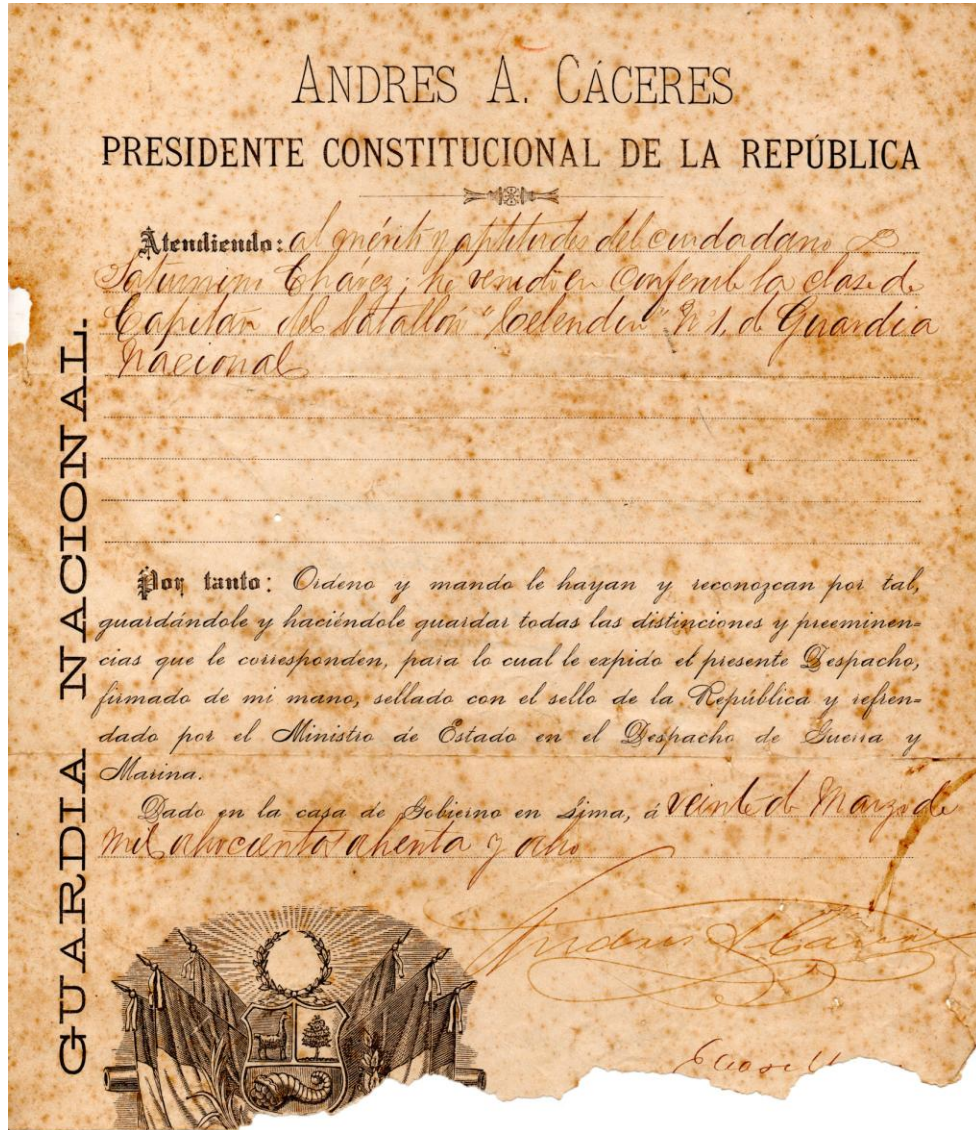 ANDRES A. CÁCERES
PRESIDENTE CONSTITUCIONAL DE LA REPÚBLICA
Atendiendo: al mérito y aptitudes del ciudadano D
Saturnino Chávez; he venido en conferirle la clase de
Capitán del batallón "Celendín" Nº 1, de Guardia
Nacional
Por tanto: Ordeno y mando le hayan y reconozcan por tal,
guardándole y haciéndole guardar todas las distinciones y preeminen-
cias que le corresponden, para lo cual le expido el presente Despacho,
firmado de mi mano, sellado con el sello de la República y refren-
dado por el Ministro de Estado en el Despacho de Guerra y
Marina.
Dado en la casa de Gobierno en Lima, á veinte de Marzo de
mil ochocientos ochenta y ocho
Andres A Caceres
GUARDIA NACIONAL.